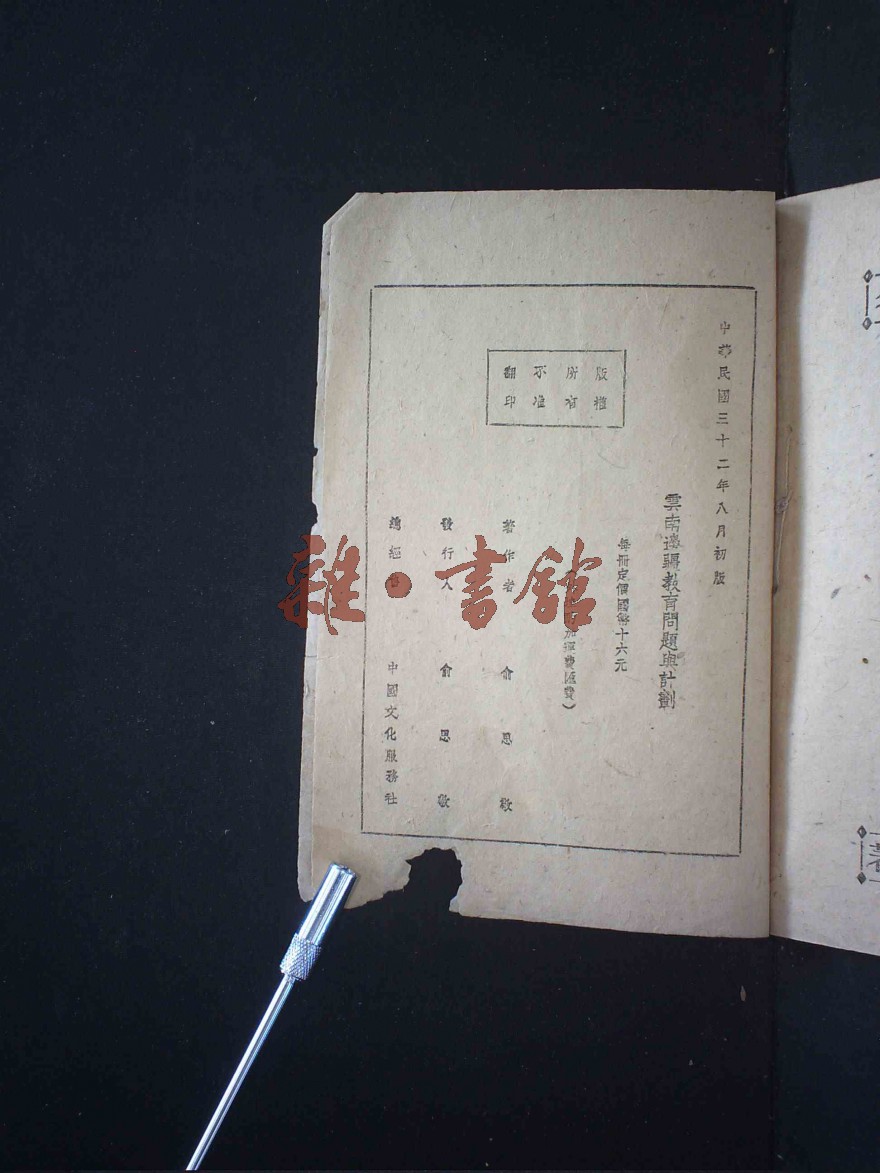 中華民國三十二年八月初版
雲南邊疆教育問題與計劃
每冊定價國幣十六元
加運費匯費）
版權
所有
不准
翻印
著作者 俞思敬
發行人 俞思敬
總經售 中國文化服務社
雜·書館